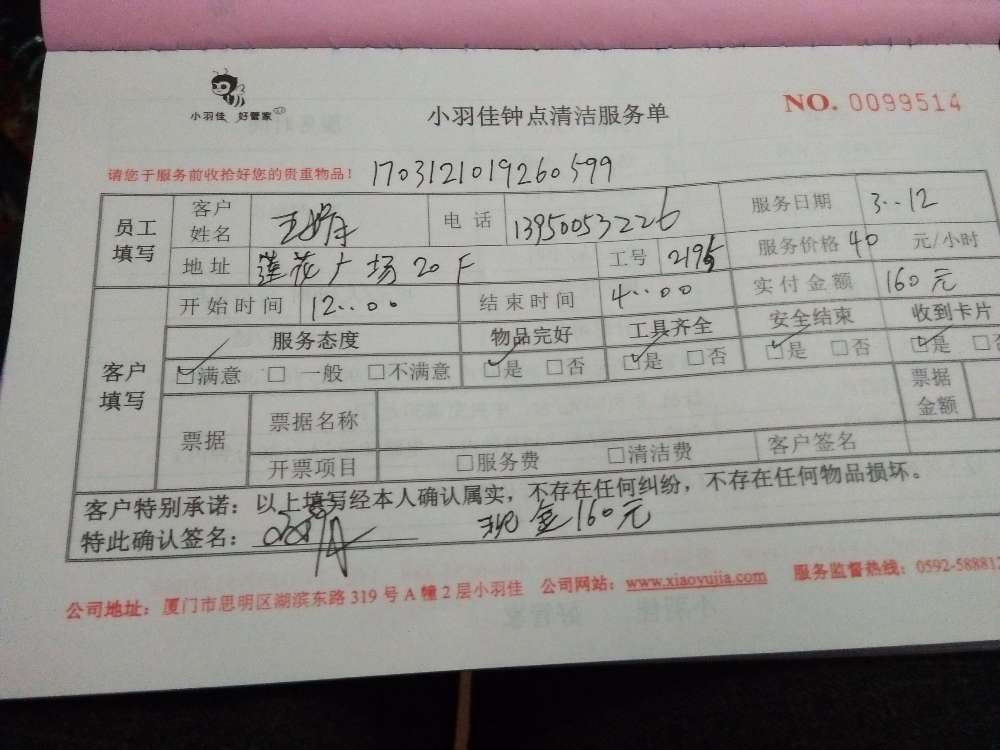 小羽佳 好管家
小羽佳钟点清洁服务单
NO. 0099514
请您于服务前收拾好您的贵重物品! 1703121019260599
员工填写 客户姓名 王 电话 13950053226 服务日期 3..12
地址 莲花广场20F 工号 2195 服务价格 40 元/小时
客户填写 开始时间 12..00 结束时间 4..00 实付金额 160元
服务态度 物品完好 工具齐全 安全结束 收到卡片
☑满意 □一般 □不满意 ☑是 □否 ☑是 □否 ☑是 □否 ☑是 □
票据 票据名称 票据金额
开票项目 □服务费 □清洁费 客户签名
客户特别承诺：以上填写经本人确认属实，不存在任何纠纷，不存在任何物品损坏。
特此确认签名： 现金160元
公司地址：厦门市思明区湖滨东路319号A幢2层小羽佳 公司网站：www.xiaoyujia.com 服务监督热线：0592-588812